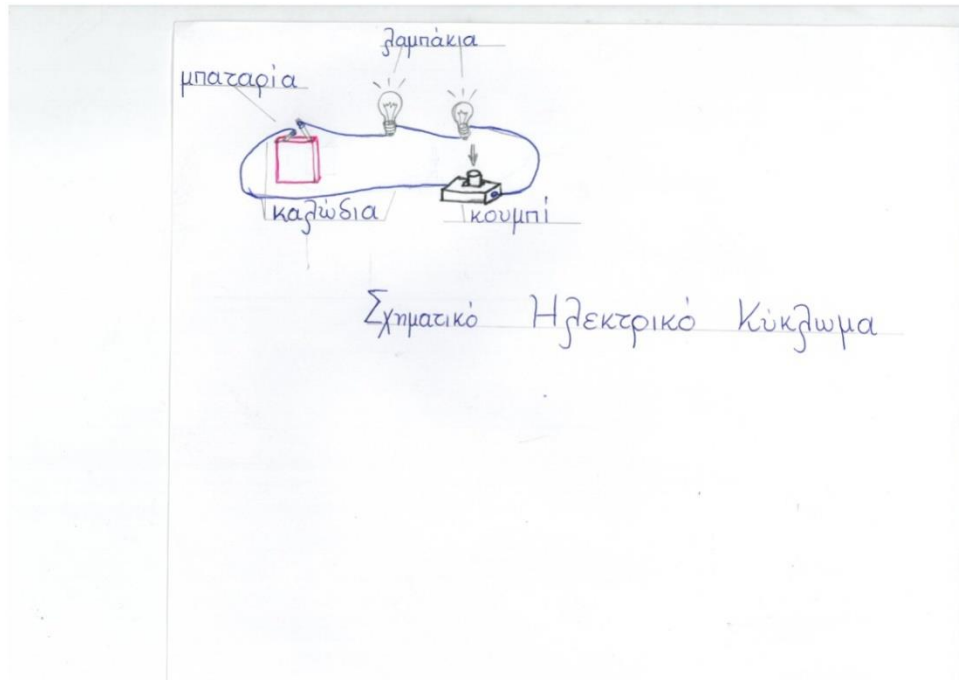 λαμπάκια
μπαταρία
καλώδια
κουμπί
Σχηματικό Ηλεκτρικό Κύκλωμα